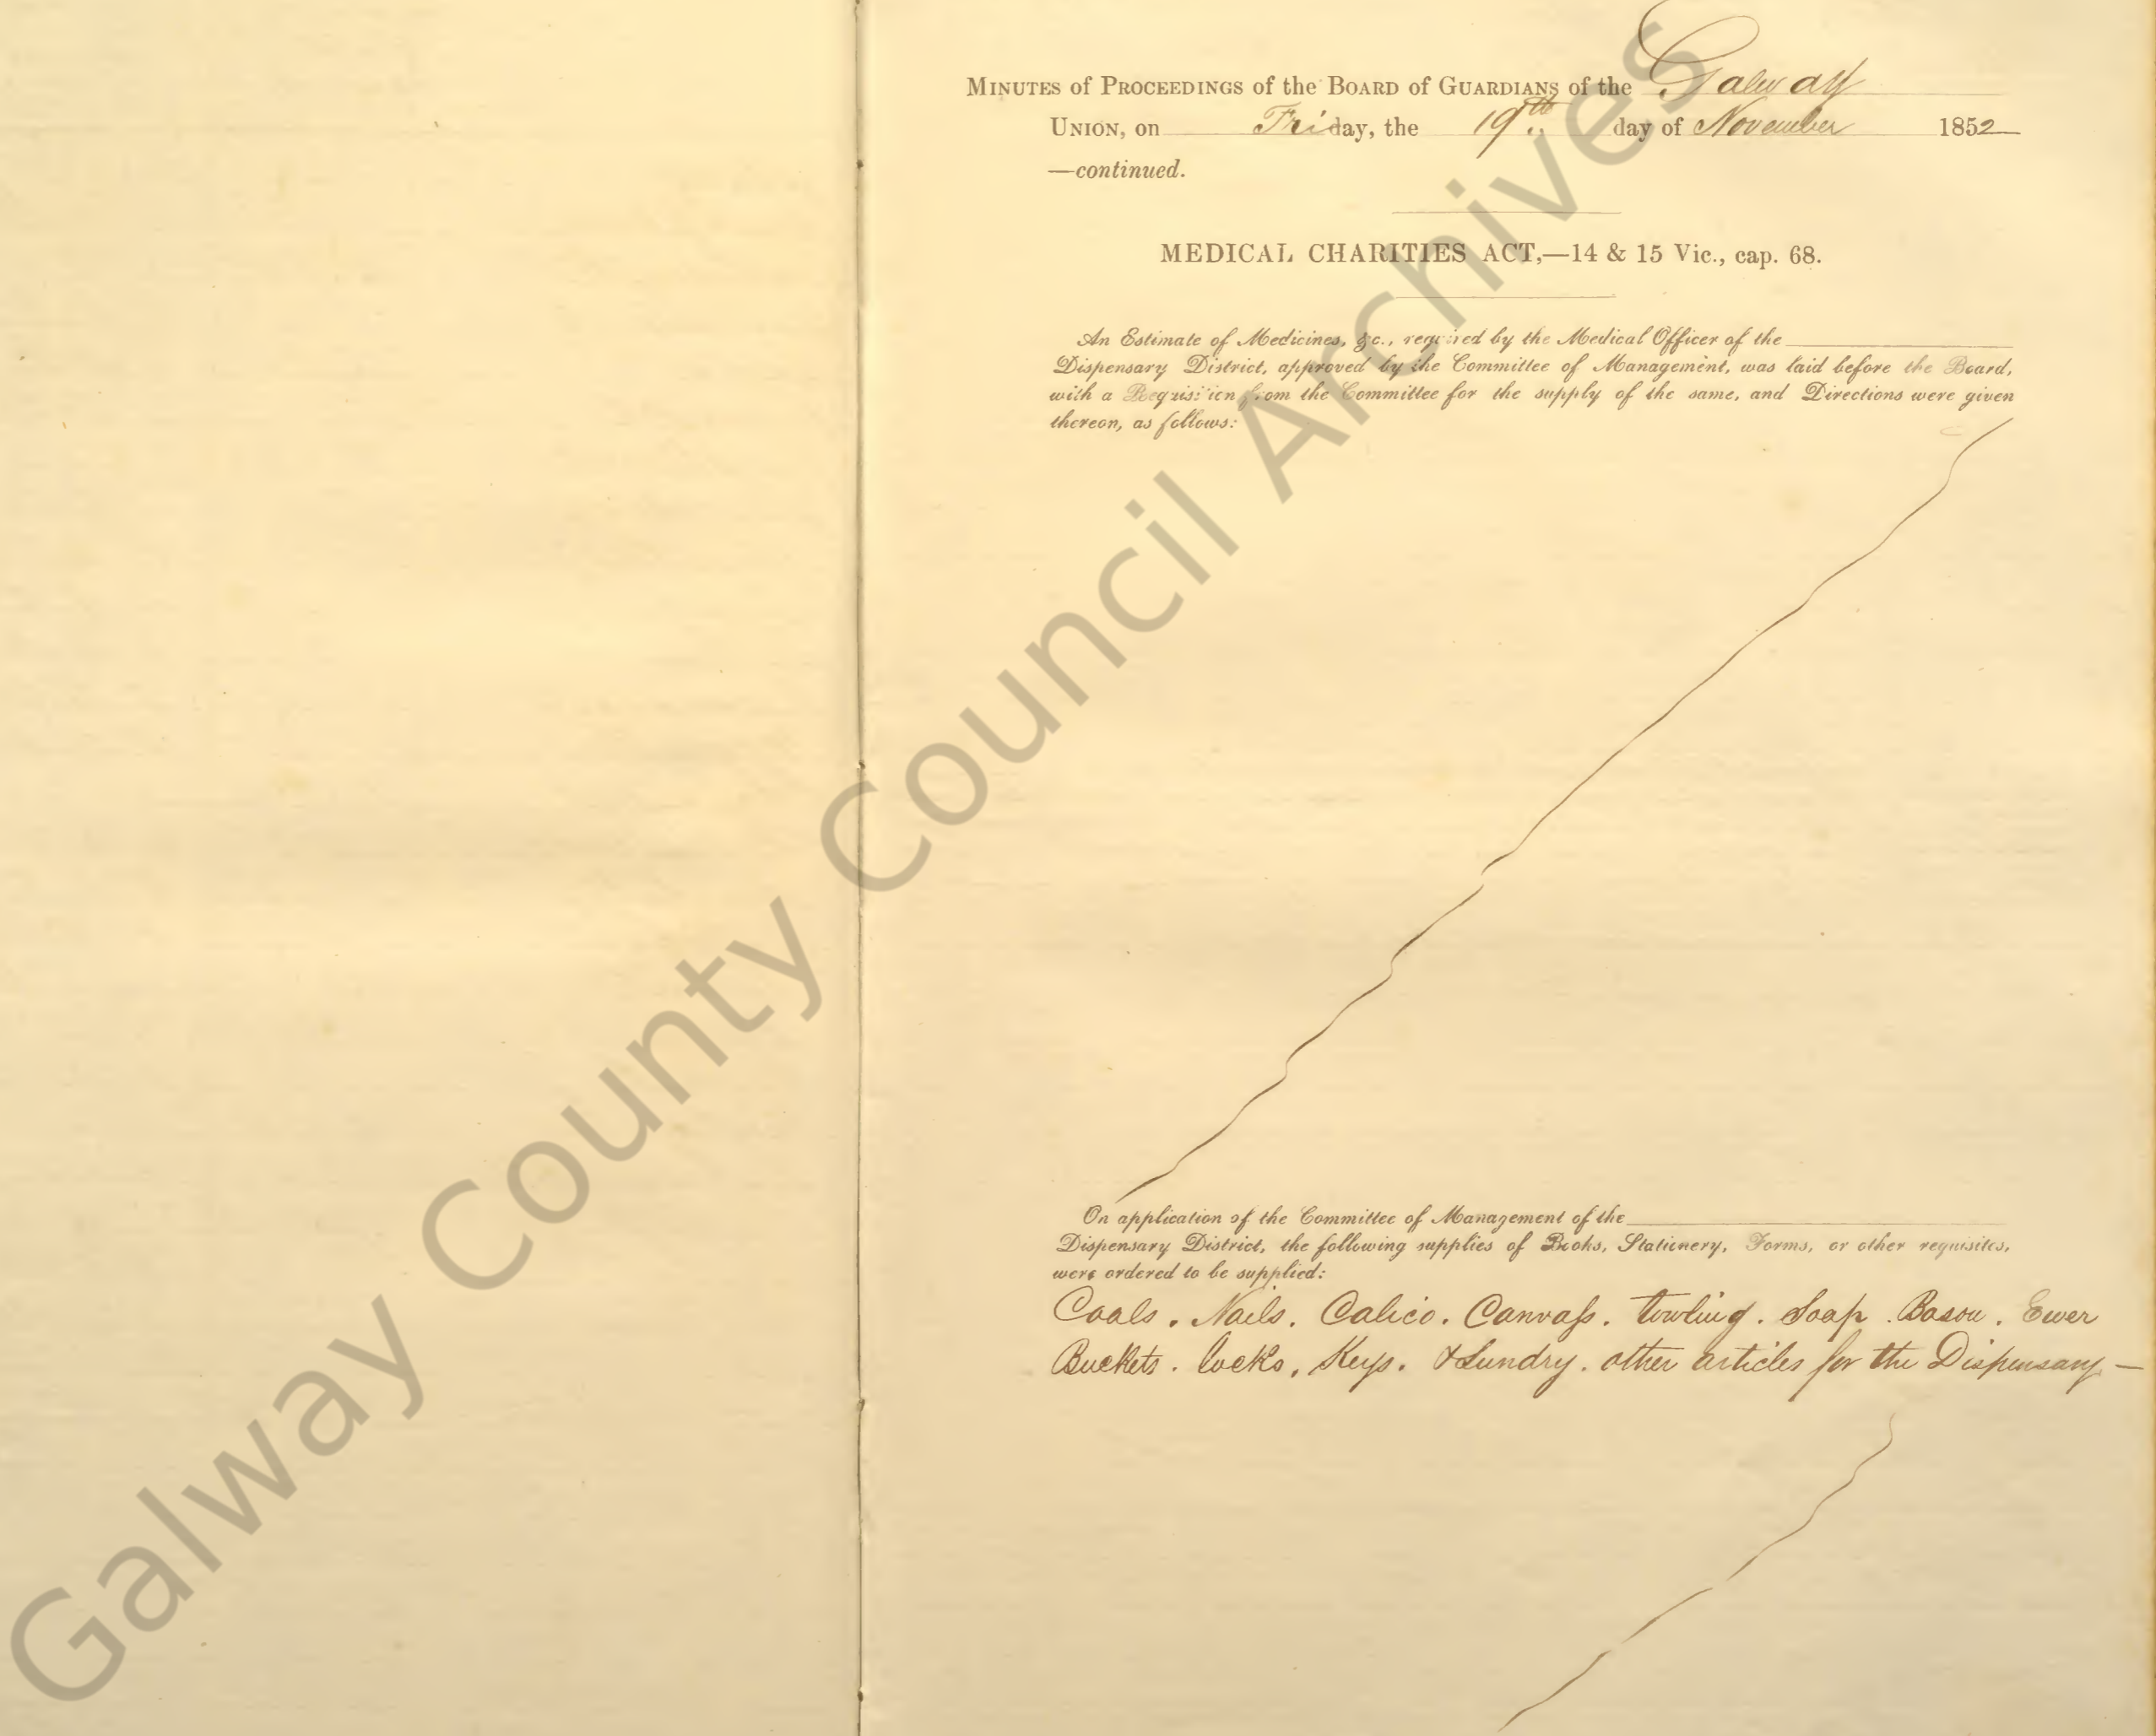 MINUTES of PROCEEDINGS of the BOARD of GUARDIANS of the Galway
UNION, on Friday, the 19th day of November 1852
—continued.
MEDICAL CHARITIES ACT,—14 & 15 Vic., cap. 68.
An Estimate of Medicines, &c., required by the Medical Officer of the
Dispensary District, approved by the Committee of Management, was laid before the Board,
with a Requisition from the Committee for the supply of the same, and Directions were given
thereon, as follows:
On application of the Committee of Management of the
Dispensary District, the following supplies of Books, Stationery, Forms, or other requisites,
were ordered to be supplied:
Coals. Nails. Calico. Canvass. towling. Soap. Bason. Ewer
Buckets. locks. Keys. & Sundry. other articles for the Dispensary —
Galway County Council Archives